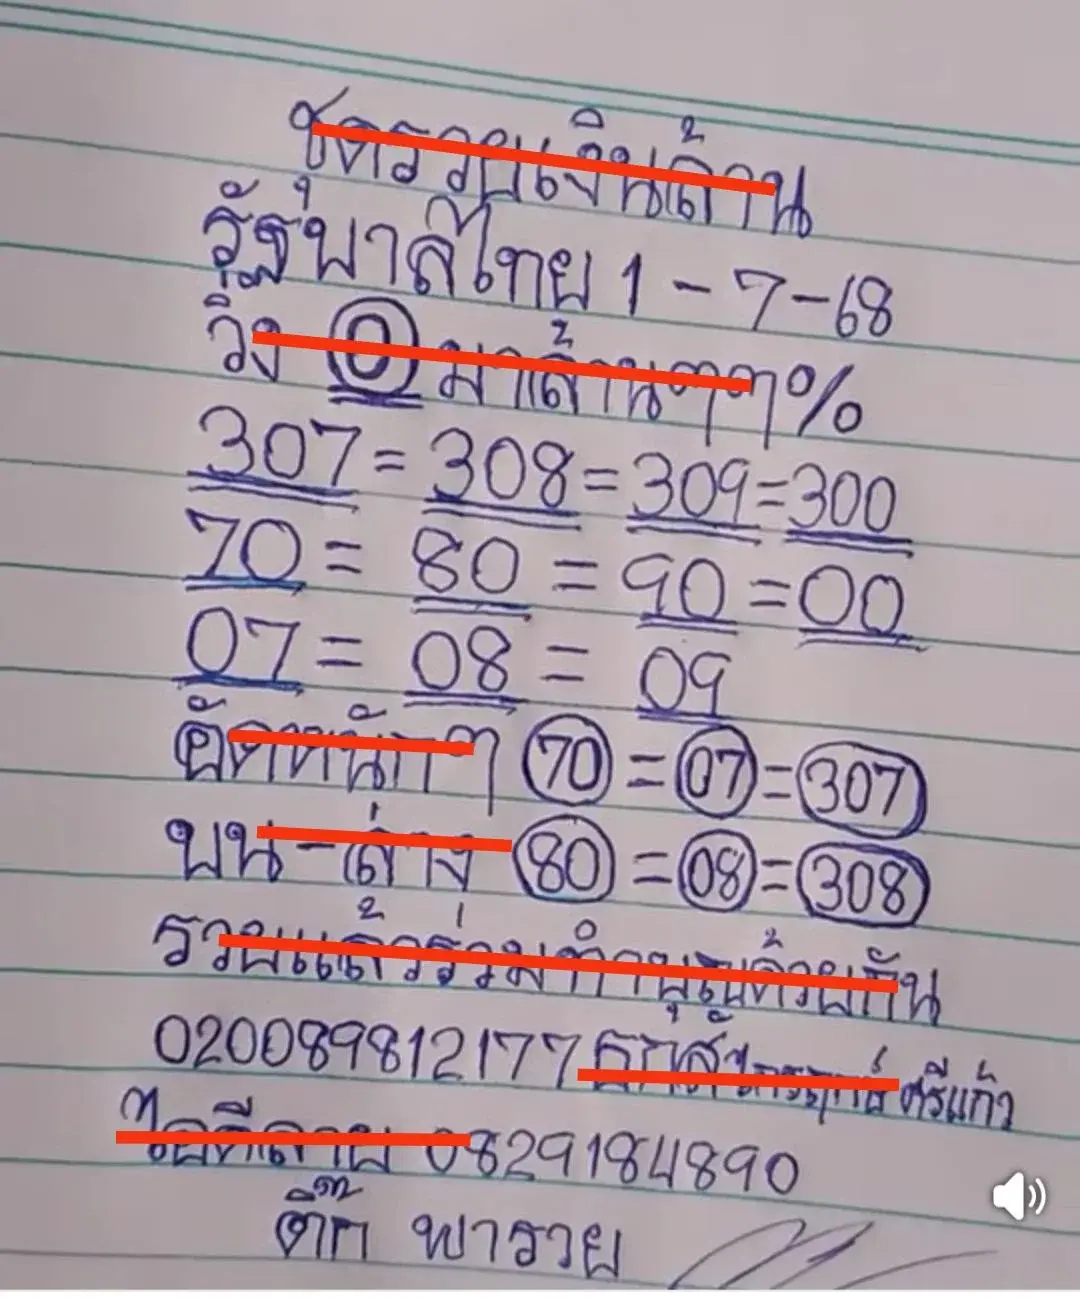 ชุดรวยเงินล้าน
รัฐบาลไทย 1-7-68
วิ่ง 0 มาล้านๆๆ%
307 = 308 = 309 = 300
70 = 80 = 90 = 00
07 = 08 = 09
อัดหนักๆ 70 = 07 = 307
บน-ล่าง 80 = 08 = 308
รวยแล้วร่วมทำบุญด้วยกัน
020089812177 ธกส ศรีแก้ว
ไอดีลาย 0829184890
ติ๊ก พารวย